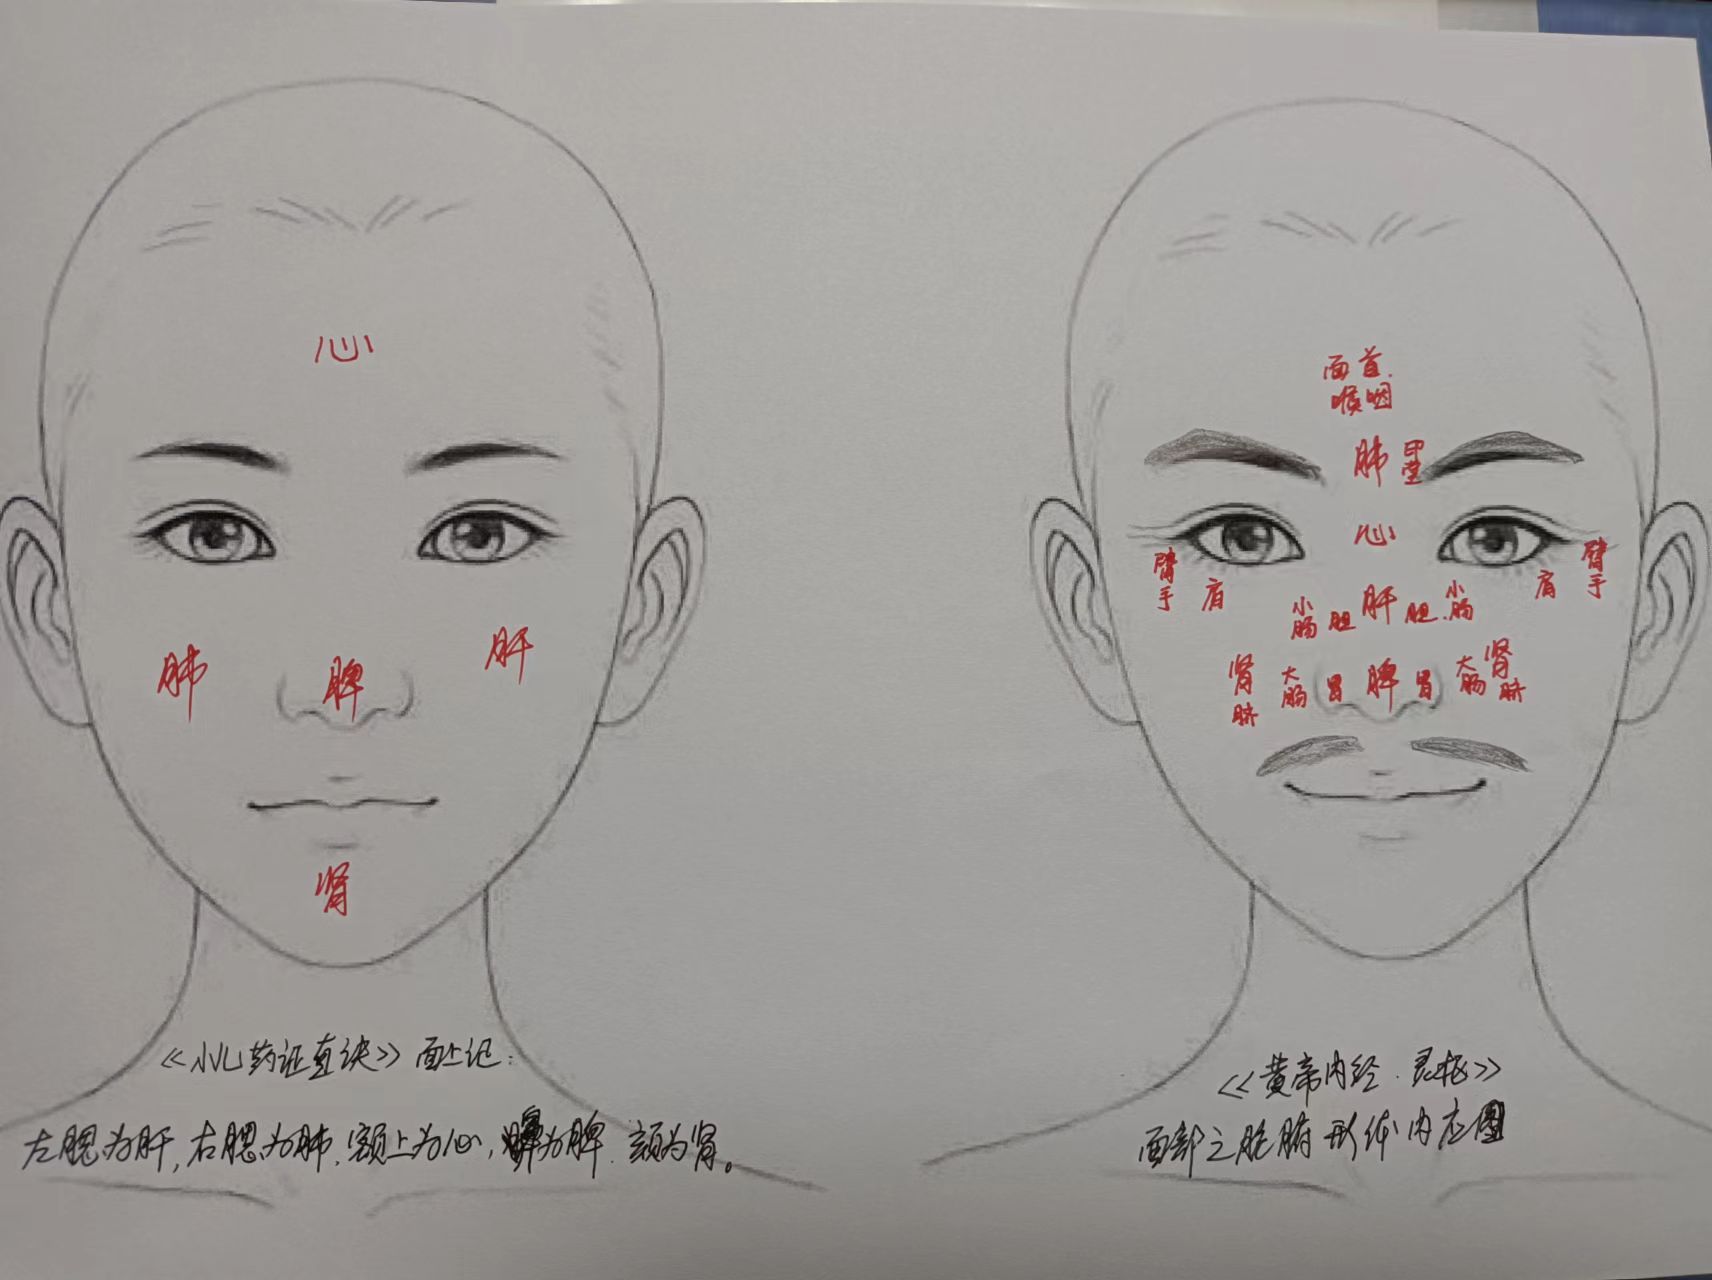 心
肺
脾
肝
肾
《小儿药证直诀》面上记:
左腮为肝,右腮为肺,额上为心,鼻为脾,颏为肾。
面首.
喉咽
肺
印堂
心
臂手
肩
小肠
胆
肝
胆.
小肠
肩
臂手
肾脐
大肠
胃
脾
胃
大肠
肾脐
《黄帝内经·灵枢》
面部之脏腑形体内应图